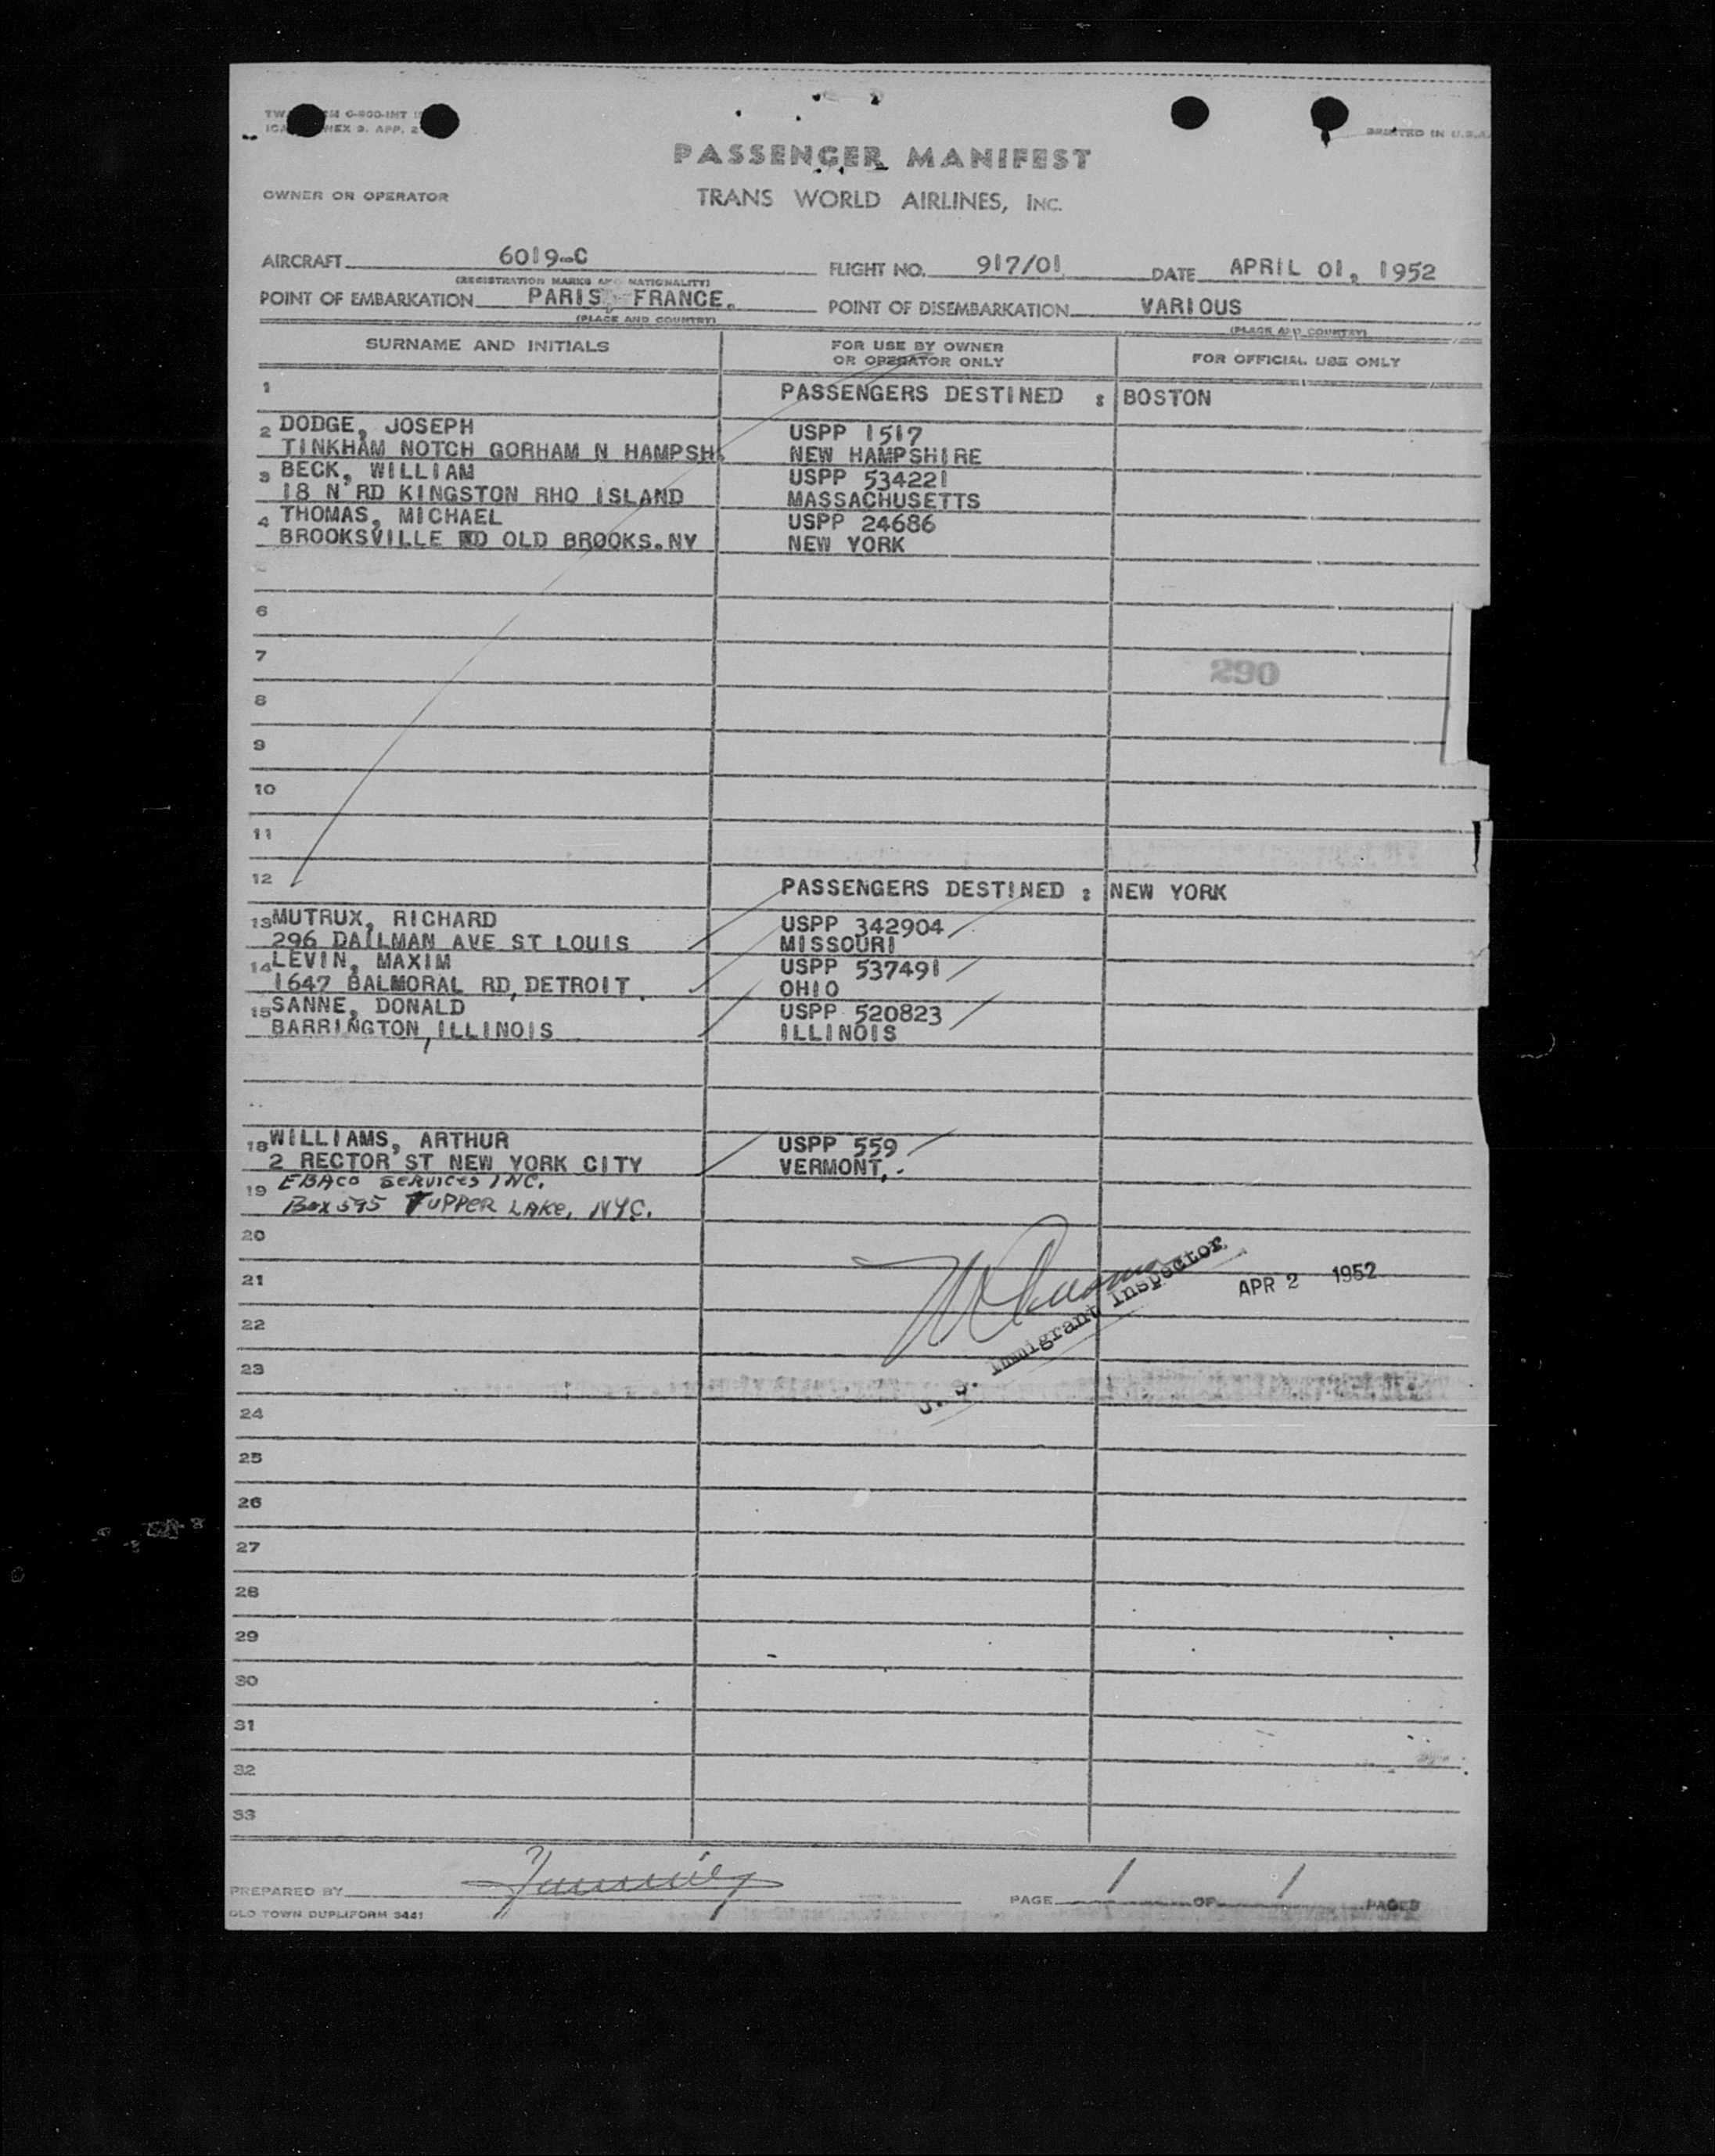 PRINTED IN U.S.A.
PASSENGER MANIFEST
OWNER OR OPERATOR
TRANS WORLD AIRLINES, INC.
AIRCRAFT 6019-C FLIGHT NO. 917/01 DATE APRIL 01, 1952
(REGISTRATION MARKS AND NATIONALITY)
POINT OF EMBARKATION PARIS FRANCE. POINT OF DISEMBARKATION VARIOUS
(PLACE AND COUNTRY) (PLACE AND COUNTRY)
SURNAME AND INITIALS FOR USE BY OWNER OR OPERATOR ONLY FOR OFFICIAL USE ONLY
1 PASSENGERS DESTINED : BOSTON
2 DODGE, JOSEPH USPP 1517
TINKHAM NOTCH GORHAM N HAMPSH. NEW HAMPSHIRE
3 BECK, WILLIAM USPP 534221
18 N RD KINGSTON RHO ISLAND MASSACHUSETTS
4 THOMAS, MICHAEL USPP 24686
BROOKSVILLE RD OLD BROOKS.NY NEW YORK
6
7
290
8
9
10
11
12 PASSENGERS DESTINED : NEW YORK
13 MUTRUX, RICHARD USPP 342904
296 DAILMAN AVE ST LOUIS MISSOURI
14 LEVIN, MAXIM USPP 537491
1647 BALMORAL RD, DETROIT. OHIO
15 SANNE, DONALD USPP 520823
BARRINGTON, ILLINOIS ILLINOIS
18 WILLIAMS, ARTHUR USPP 559
2 RECTOR ST NEW YORK CITY VERMONT,.
19 EBACO SERVICES INC.
Box 595 TUPPER LAKE, NYC.
20
21 U. S. Immigrant Inspector APR 2 1952
22
23
24
25
26
27
28
29
30
31
32
33
PREPARED BY PAGE 1 OF 1 PAGES
OLD TOWN DUPLIFORM 3441